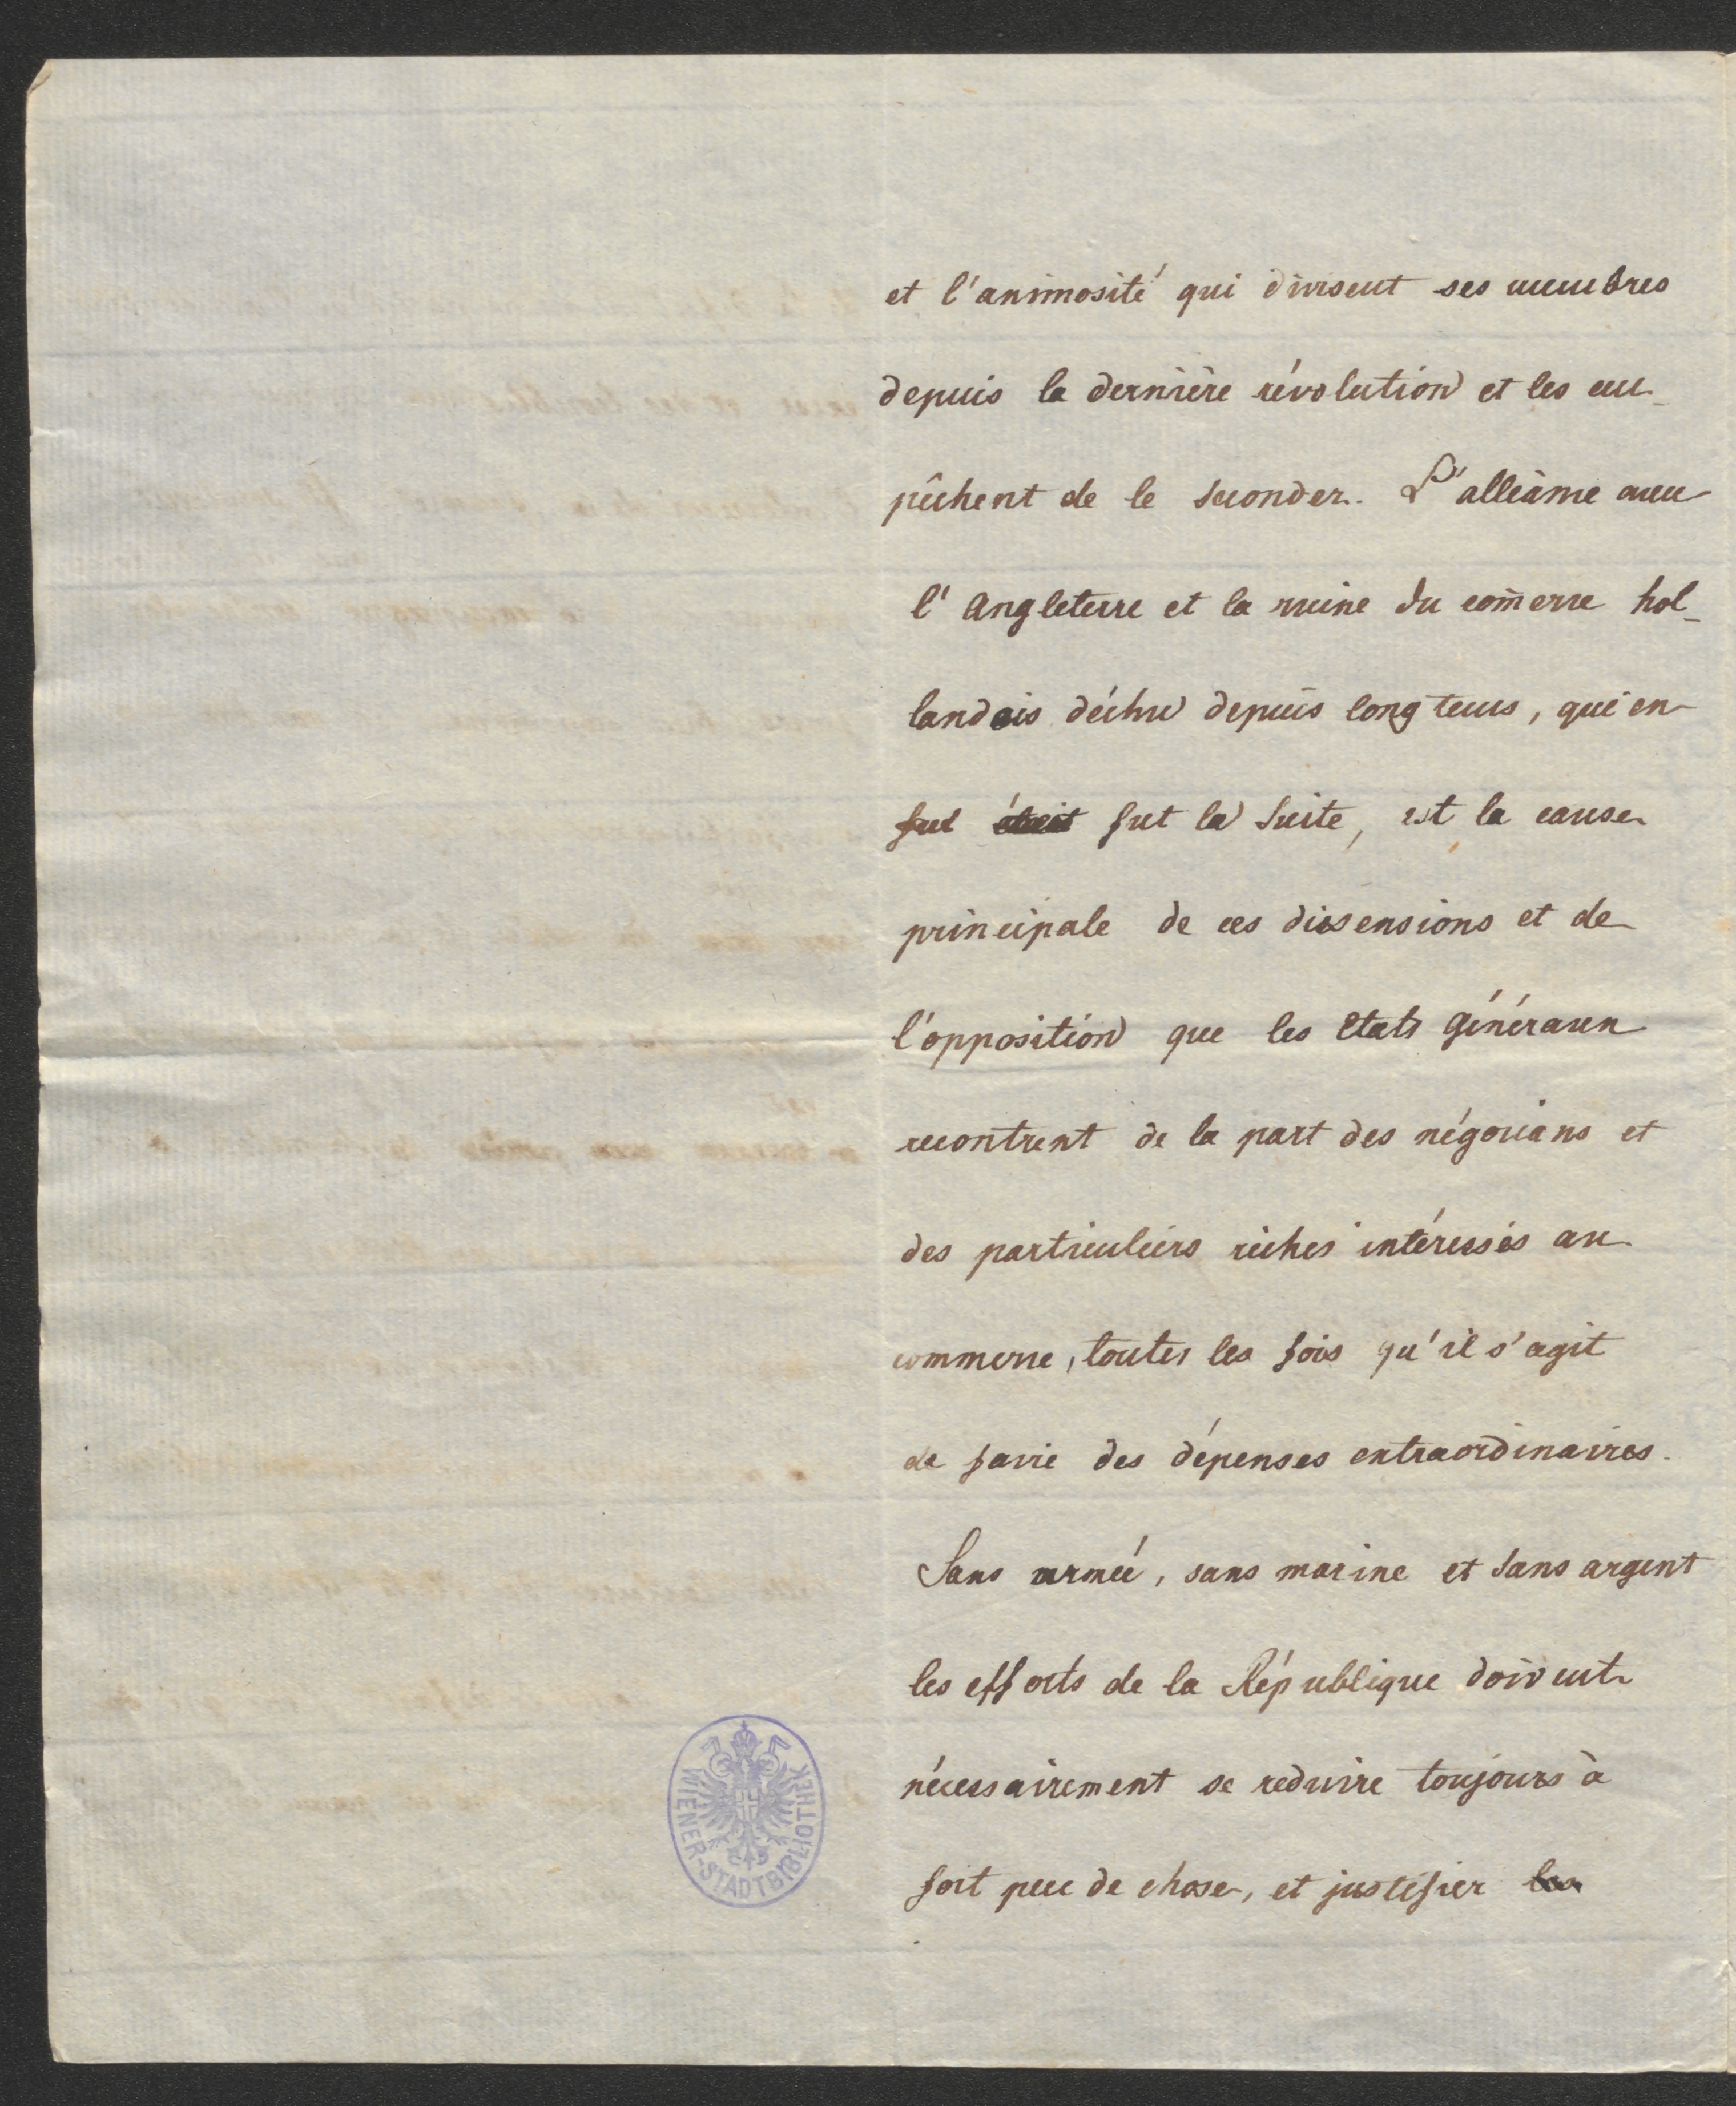 et l'animosité qui divisent ses membres
depuis la dernière révolution et les em_
pêchent de le seconder. L'alliance avec
l'Angleterre et la ruine du com̄erce hol_
landois déchu depuis longtems, qui en
fut étoit fut la suite, est la cause
principale de ces dissensions et de
l'opposition que les Etats Généraux
recontrent de la part des négocians et
des particuliers riches intéressés au
commerce, toutes les fois qu'il s'agit
de faire des dépenses extraordinaires.
Sans armée, sans marine et sans argent
les efforts de la République doivent
nécessairement se reduire toujours à
fort peu de chose, et justifier les
WIENER-STADTBIBLIOTHEK